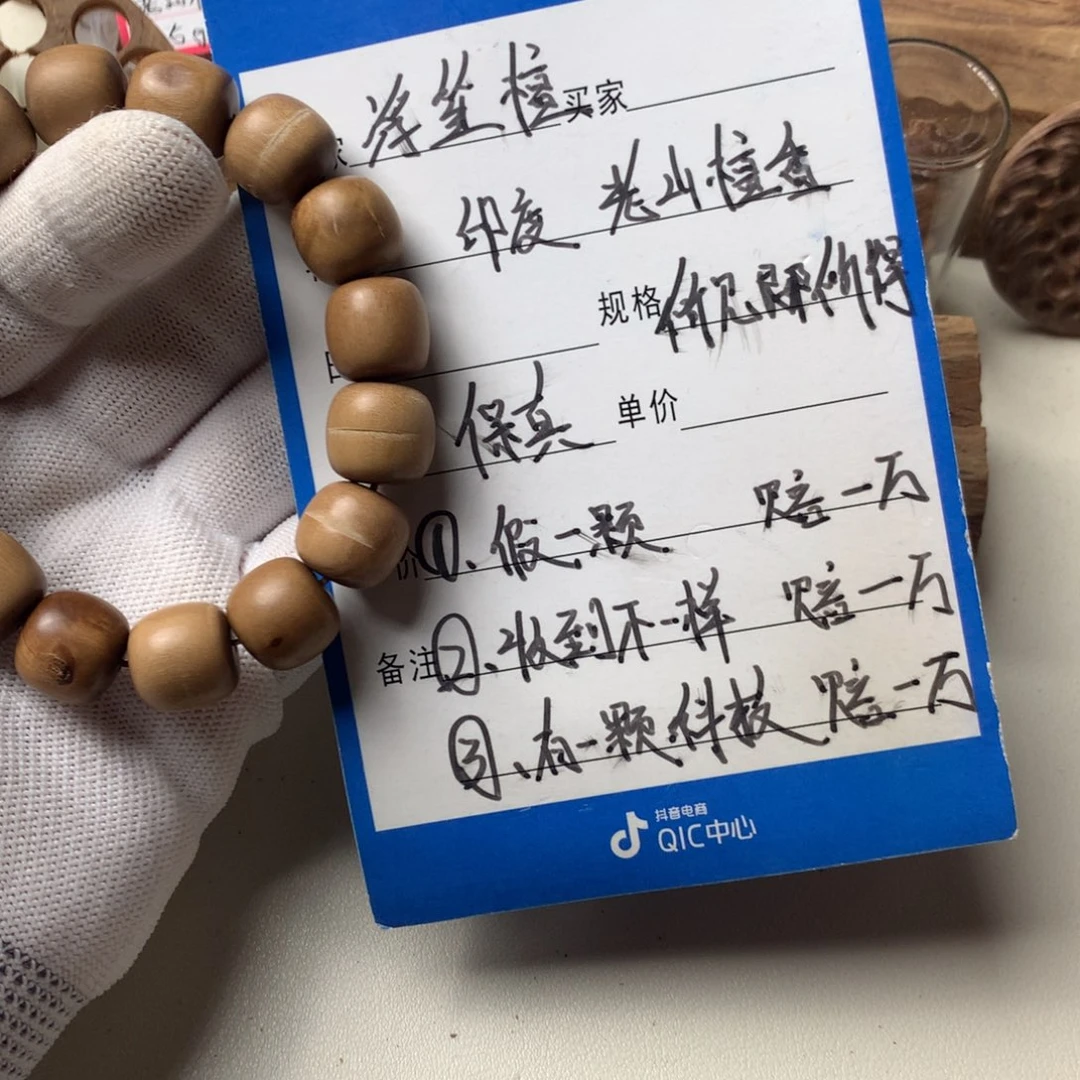 家 檀 买家
印度 老山檀香
规格 价见即所得
保真 单价
价 ①、假一颗 赔一万
备注 ②、收到不一样 赔一万
③、有一颗科技 赔一万
抖音电商
QIC中心